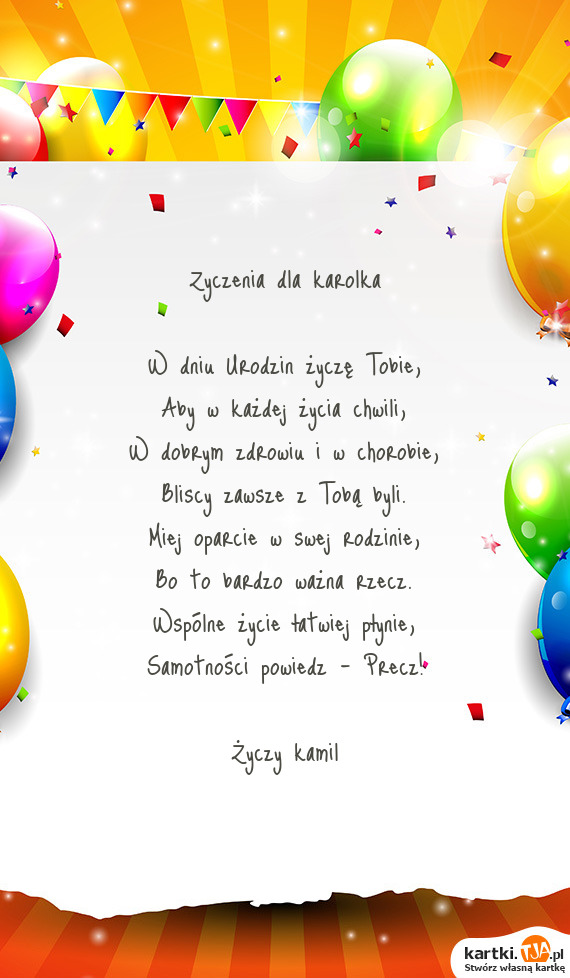 Zyczenia dla karolka
W dniu Urodzin życzę Tobie,
Aby w każdej życia chwili,
W dobrym zdrowiu i w chorobie,
Bliscy zawsze z Tobą byli.
Miej oparcie w swej rodzinie,
Bo to bardzo ważna rzecz.
Wspólne życie łatwiej płynie,
Samotności powiedz - Precz!
Życzy kamil
kartki.TJA.pl
Stwórz własną kartkę